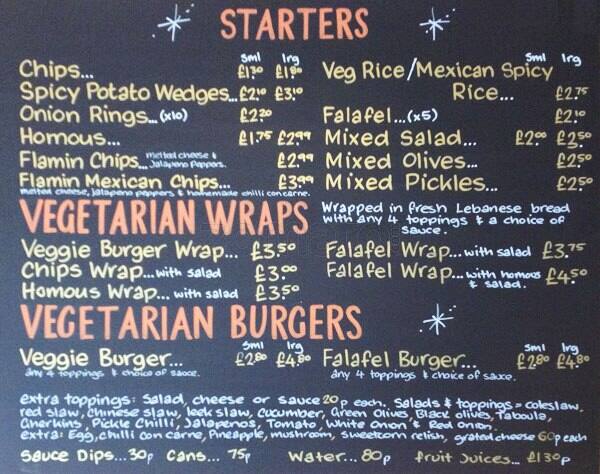 STARTERS
sml lrg
Chips... £1.30 £1.80
Spicy Potato Wedges... £2.10 £3.10
Onion Rings... (x10) £2.20
Homous... £1.75 £2.99
Flamin Chips... melted cheese & Jalapeno Peppers. £2.99
Flamin Mexican Chips... £3.99
melted cheese, jalapeno peppers & homemade chilli con carne.
sml lrg
Veg Rice/Mexican Spicy
Rice... £2.75
Falafel... (x5) £2.10
Mixed Salad... £2.00 £3.50
Mixed Olives... £2.50
Mixed Pickles... £2.50
VEGETARIAN WRAPS
Wrapped in fresh Lebanese bread
with any 4 toppings & a choice of
sauce.
Veggie Burger Wrap... £3.50
Chips Wrap... with salad £3.00
Homous Wrap... with salad £3.50
Falafel Wrap... with salad £3.75
Falafel Wrap... with homous & salad. £4.50
VEGETARIAN BURGERS
sml lrg
Veggie Burger... £2.80 £4.80
any 4 toppings & choice of sauce.
sml lrg
Falafel Burger... £2.80 £4.80
any 4 toppings & choice of sauce.
extra toppings: Salad, cheese or sauce 20p each. Salads & toppings = coleslaw,
red slaw, chinese slaw, leek slaw, cucumber, Green Olives, Black olives, Taboula,
Gherkins, Pickle Chilli, Jalapenos, Tomato, White Onion & Red Onion.
extra: Egg, chilli con carne, Pineapple, mushroom, sweetcorn relish, grated cheese 60p each
Sauce Dips... 30p Cans... 75p Water... 80p fruit Juices... £1.30p